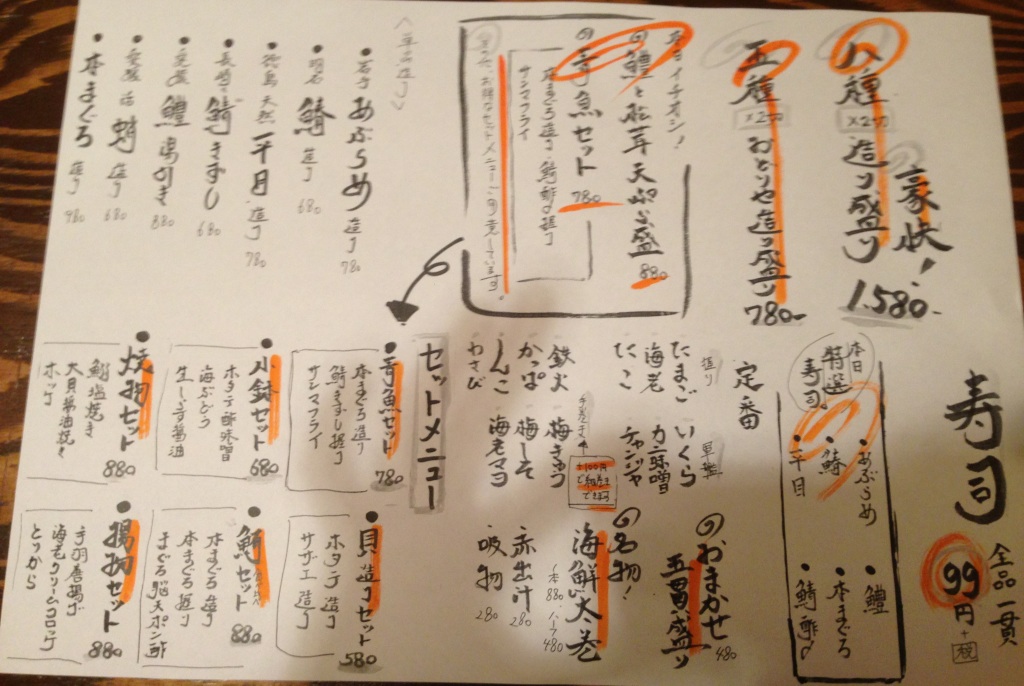 豪快!
八種
×2切
造り盛り
1.580-
五種
×2切
おとりや造り盛り
780-
本日イチオシ!
鱧と松茸天ぷら盛
880
青魚セット
780
本まぐろ造り・鯖酢の握り
サンマフライ
お得なセットメニューご用意しています。
あぶらめ 造り 780
明石 鯵 造り 680
徳島 天然 平目 造り 780
長崎 鯖きずし 680
愛媛 鱧湯引き 880
愛媛 活 蛸 造り 680
本まぐろ 造り 980
寿司
全品一貫
99円
+税
本日
特選
寿司
・あぶらめ
・鱧
・鯵
・本まぐろ
・平目
・鯖酢〆
定番
握り
軍艦
たまご
いくら
海老
カニ味噌
たこ
チャンジャ
鉄火
梅きゅう
かっぱ
梅しそ
しんこ
海老マヨ
わさび
+100円
おまかせ
五貫盛り
480
名物!
海鮮太巻
一本 880- ハーフ 480
赤出汁 280
吸物 280
セットメニュー
青魚セット
本まぐろ造り
鯖きずし握り
サンマフライ
780
小鉢セット
ホタテ酢味噌
海ぶどう
生しらす醤油
680
焼物セット
鯛塩焼き
大貝醤油焼き
ホッケ
880
貝造りセット
ホタテ 造り
サザエ 造り
580
鮪セット
本まぐろ 造り
本まぐろ 握り
まぐろ脳天ポン酢
880
揚物セット
手羽唐揚げ
海老クリームコロッケ
とりから
880